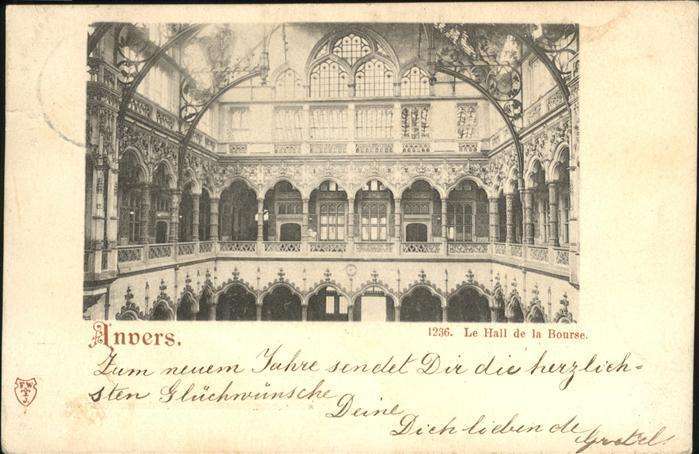 Anvers.
1236. Le Hall de la Bourse.
Zum neuem Jahre sendet Dir die herzlich-
sten Glückwünsche
Deine
Dich liebende